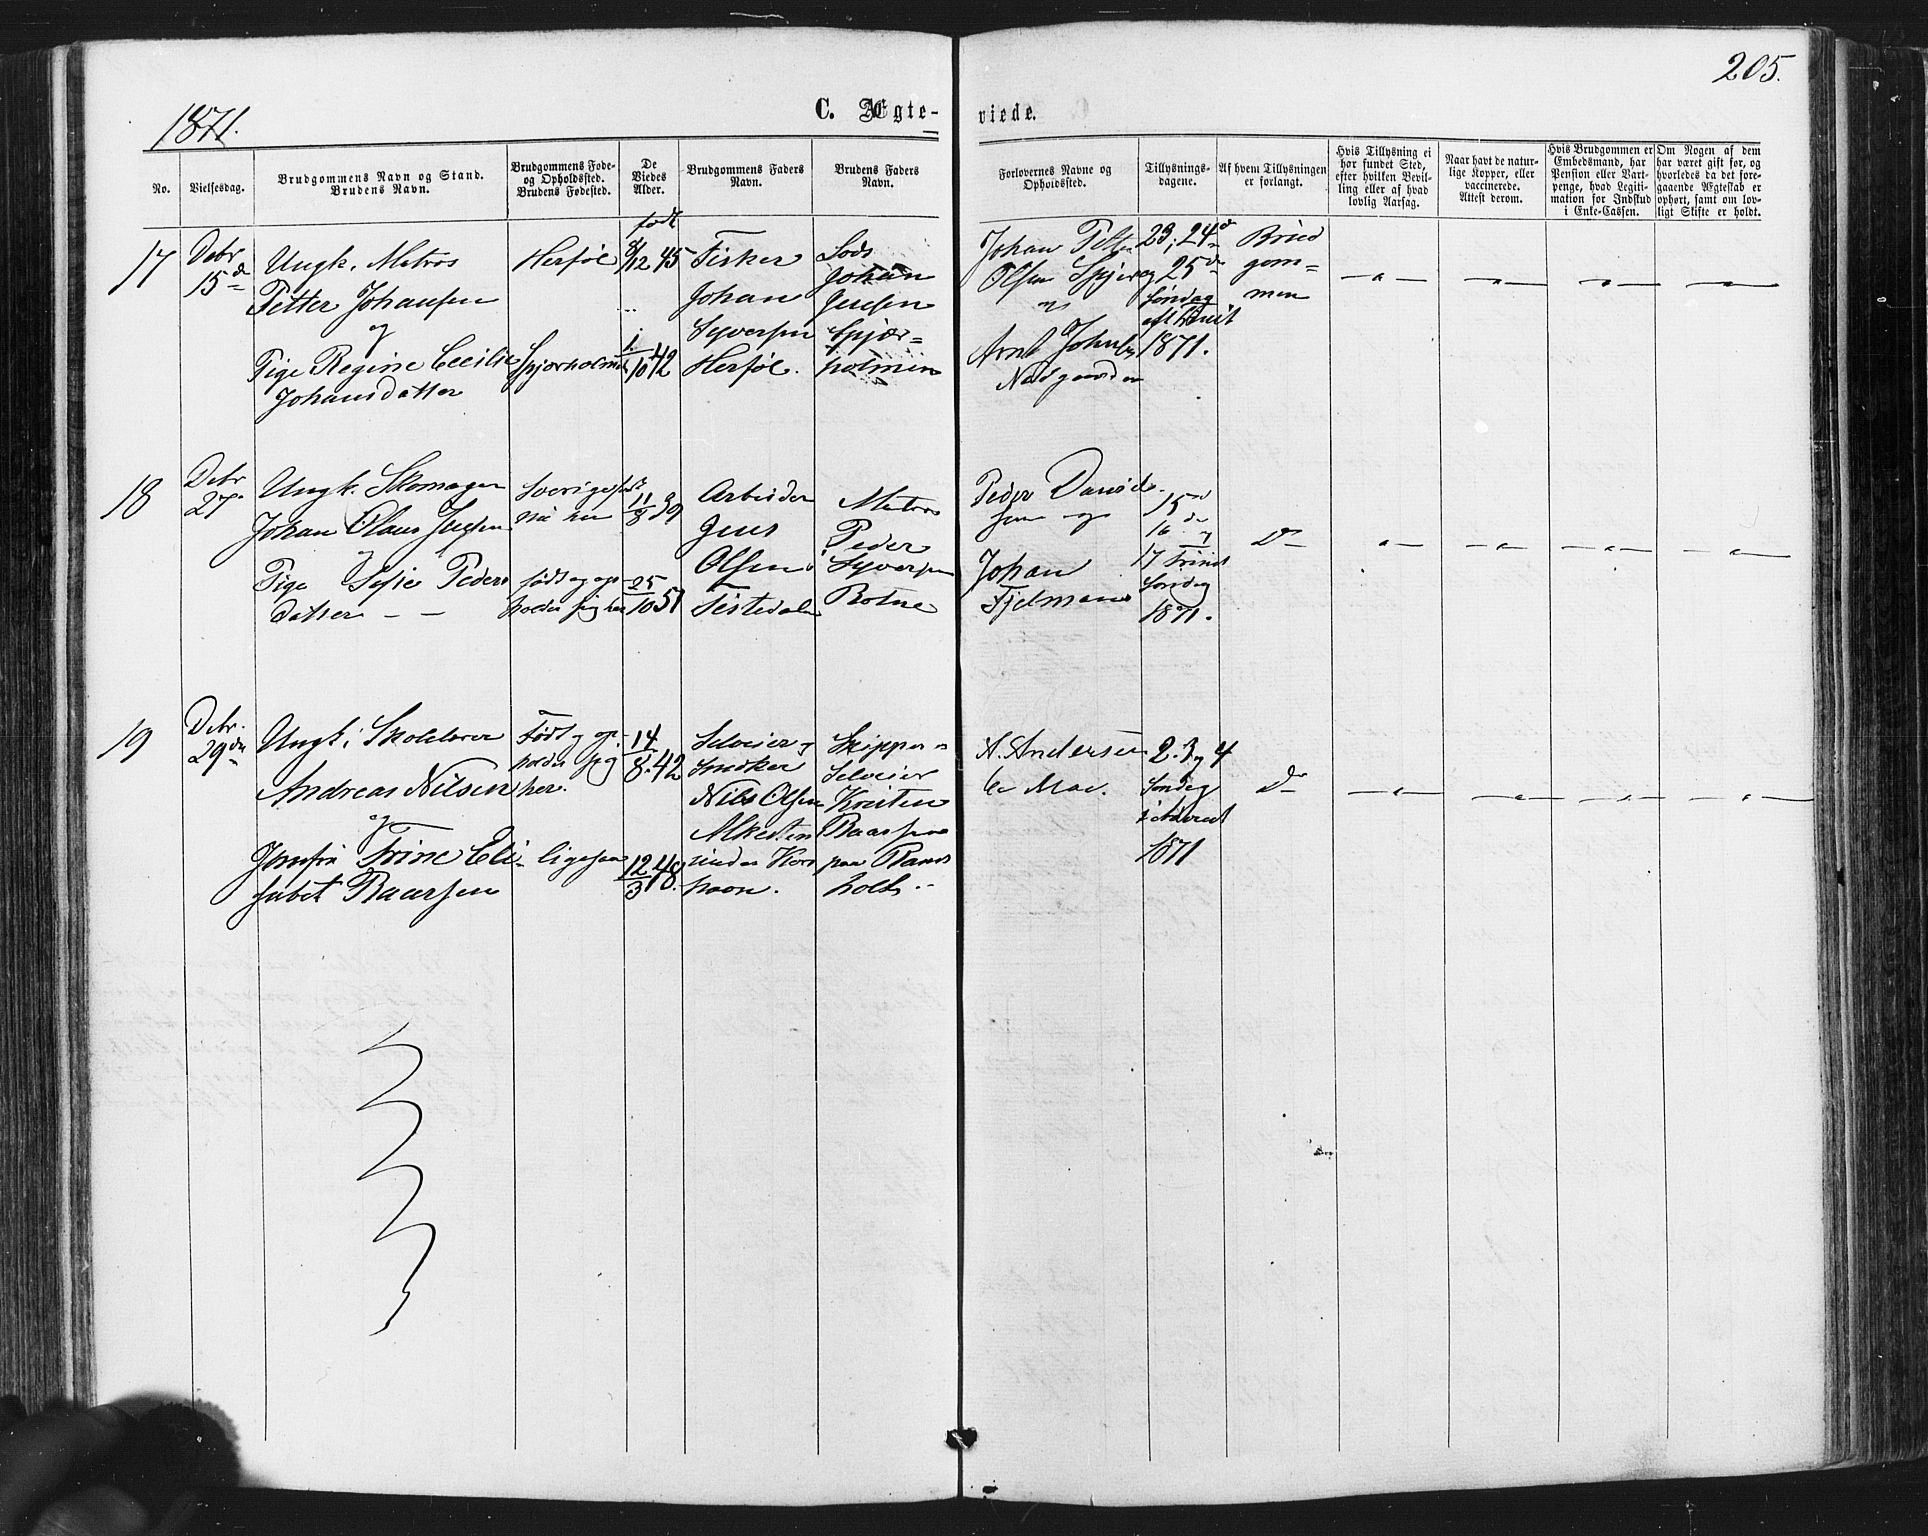 205.
1871.
C. Ægte-
viede.
No.
Vielsesdag.
Brudgommens Navn og Stand.
Brudens Navn.
Brudgommens Føde-
og Opholdssted.
Brudens Fødested.
De
Viedes
Alder.
Brudgommens Faders
Navn.
Brudens Faders
Navn.
Forlovernes Navne og
Opholdssted.
Tillysnings-
dagene.
Af hvem Tillysningen
er forlangt.
Hvis Tillysning ei
har fundet Sted,
efter hvilken Bevil-
ling eller af hvad
lovlig Aarsag.
Naar havt de natur-
lige Kopper, eller
vaccinerede.
Attest derom.
Hvis Brudgommen er
Embedsmand, har
Pension eller Vart-
penge, hvad Legiti-
mation for Indskud
i Enke-Cassen.
Om Nogen af dem
har været gift før, og
hvorledes da det fore-
gaaende Ægteskab er
ophørt, samt om lov-
ligt Skifte er holdt.
17
Debr
15 de
Ungk. Matros
Petter Johansen
og
Pige Regine Cecilie
Johansdatter
Herføl
Spjærholmen
født
8/12 45
1/10 42
Fisker
Johan
Syversen
Herføl.
Lods
Johan
Jensen
Spjær-
holmen
Johan Petter
Olsen Spjær
og
Arnt Johnsen
Nordgaarden
23, 24 de
og 25 de
Søndag
eft Trinit
1871.
Brud
gom-
men
18
Debr
27
Ungk. Skomager
Johan Claus Jensen
og
Pige Sofie Peders
datter
Sverige født
nu her
født og op-
holder sig her
11/8 39
25/10 51
Arbeider
Jens
Olsen
Tistedalen
Matros
Peder
Syversen
Botne
Peder David-
sen og
Johan
Fjelmann
15 de
16 de og
17 Trinit
Søndag
1871.
Do
19
Debr.
29 de
Ungk. Skolelærer
Andreas Nilsen
og
Jomfru Trine Eli-
sabet Baarsen
Født og op-
holder sig
her.
ligesaa
14/8 42
12/3 48.
Selveier og
Snedker
Nils Olsen
under Kors
havn.
Skipper og
Selveier
Kristen
Baarsen
paa Rams
holt
A. Andersen
C. Moe.
2. 3 og 4
Søndag
i Advent
1871
Do